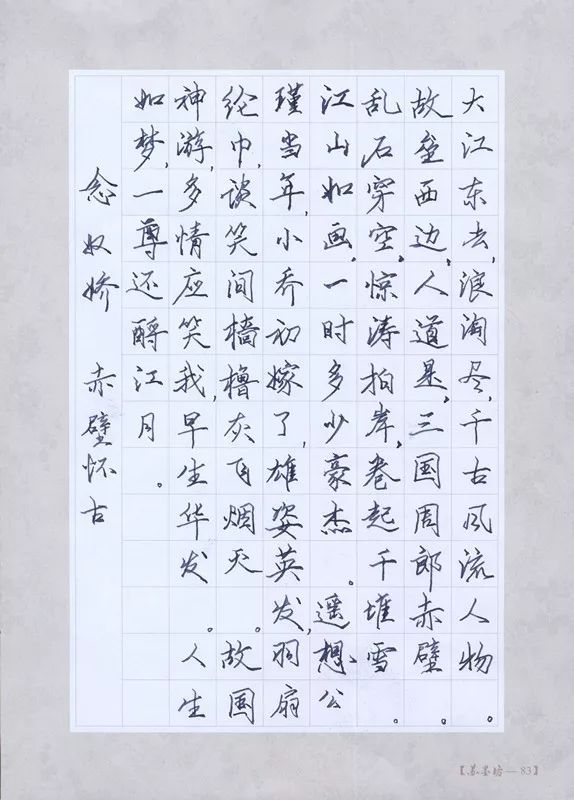 大江东去,浪淘尽,千古风流人物。
故垒西边,人道是,三国周郎赤壁
乱石穿空,惊涛拍岸,卷起千堆雪。
江山如画,一时多少豪杰。遥想公
瑾当年,小乔初嫁了,雄姿英发,羽扇
纶巾,谈笑间樯橹灰飞烟灭。故国
神游,多情应笑我,早生华发。人生
如梦,一尊还酹江月。
念奴娇 赤壁怀古
【苏墨坊—83】